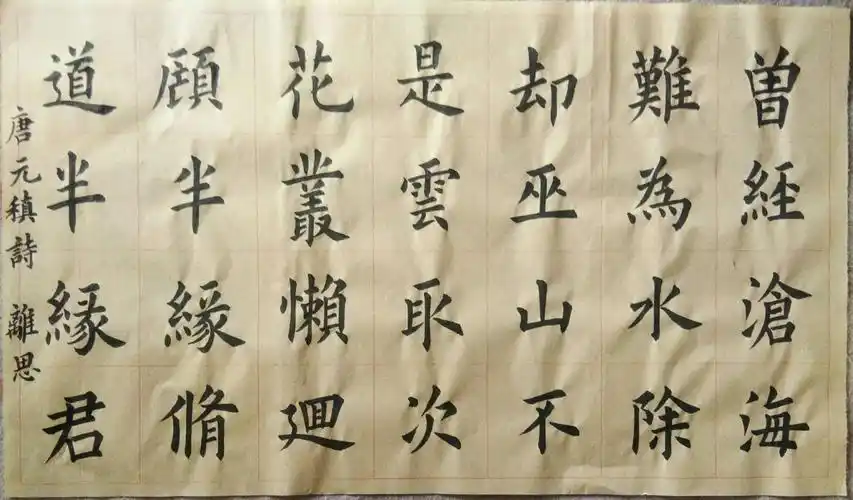 曽經滄海
難為水除
却巫山不
是雲取次
花叢懶廻
顧半緣脩
道半緣君
唐元稹詩 離思